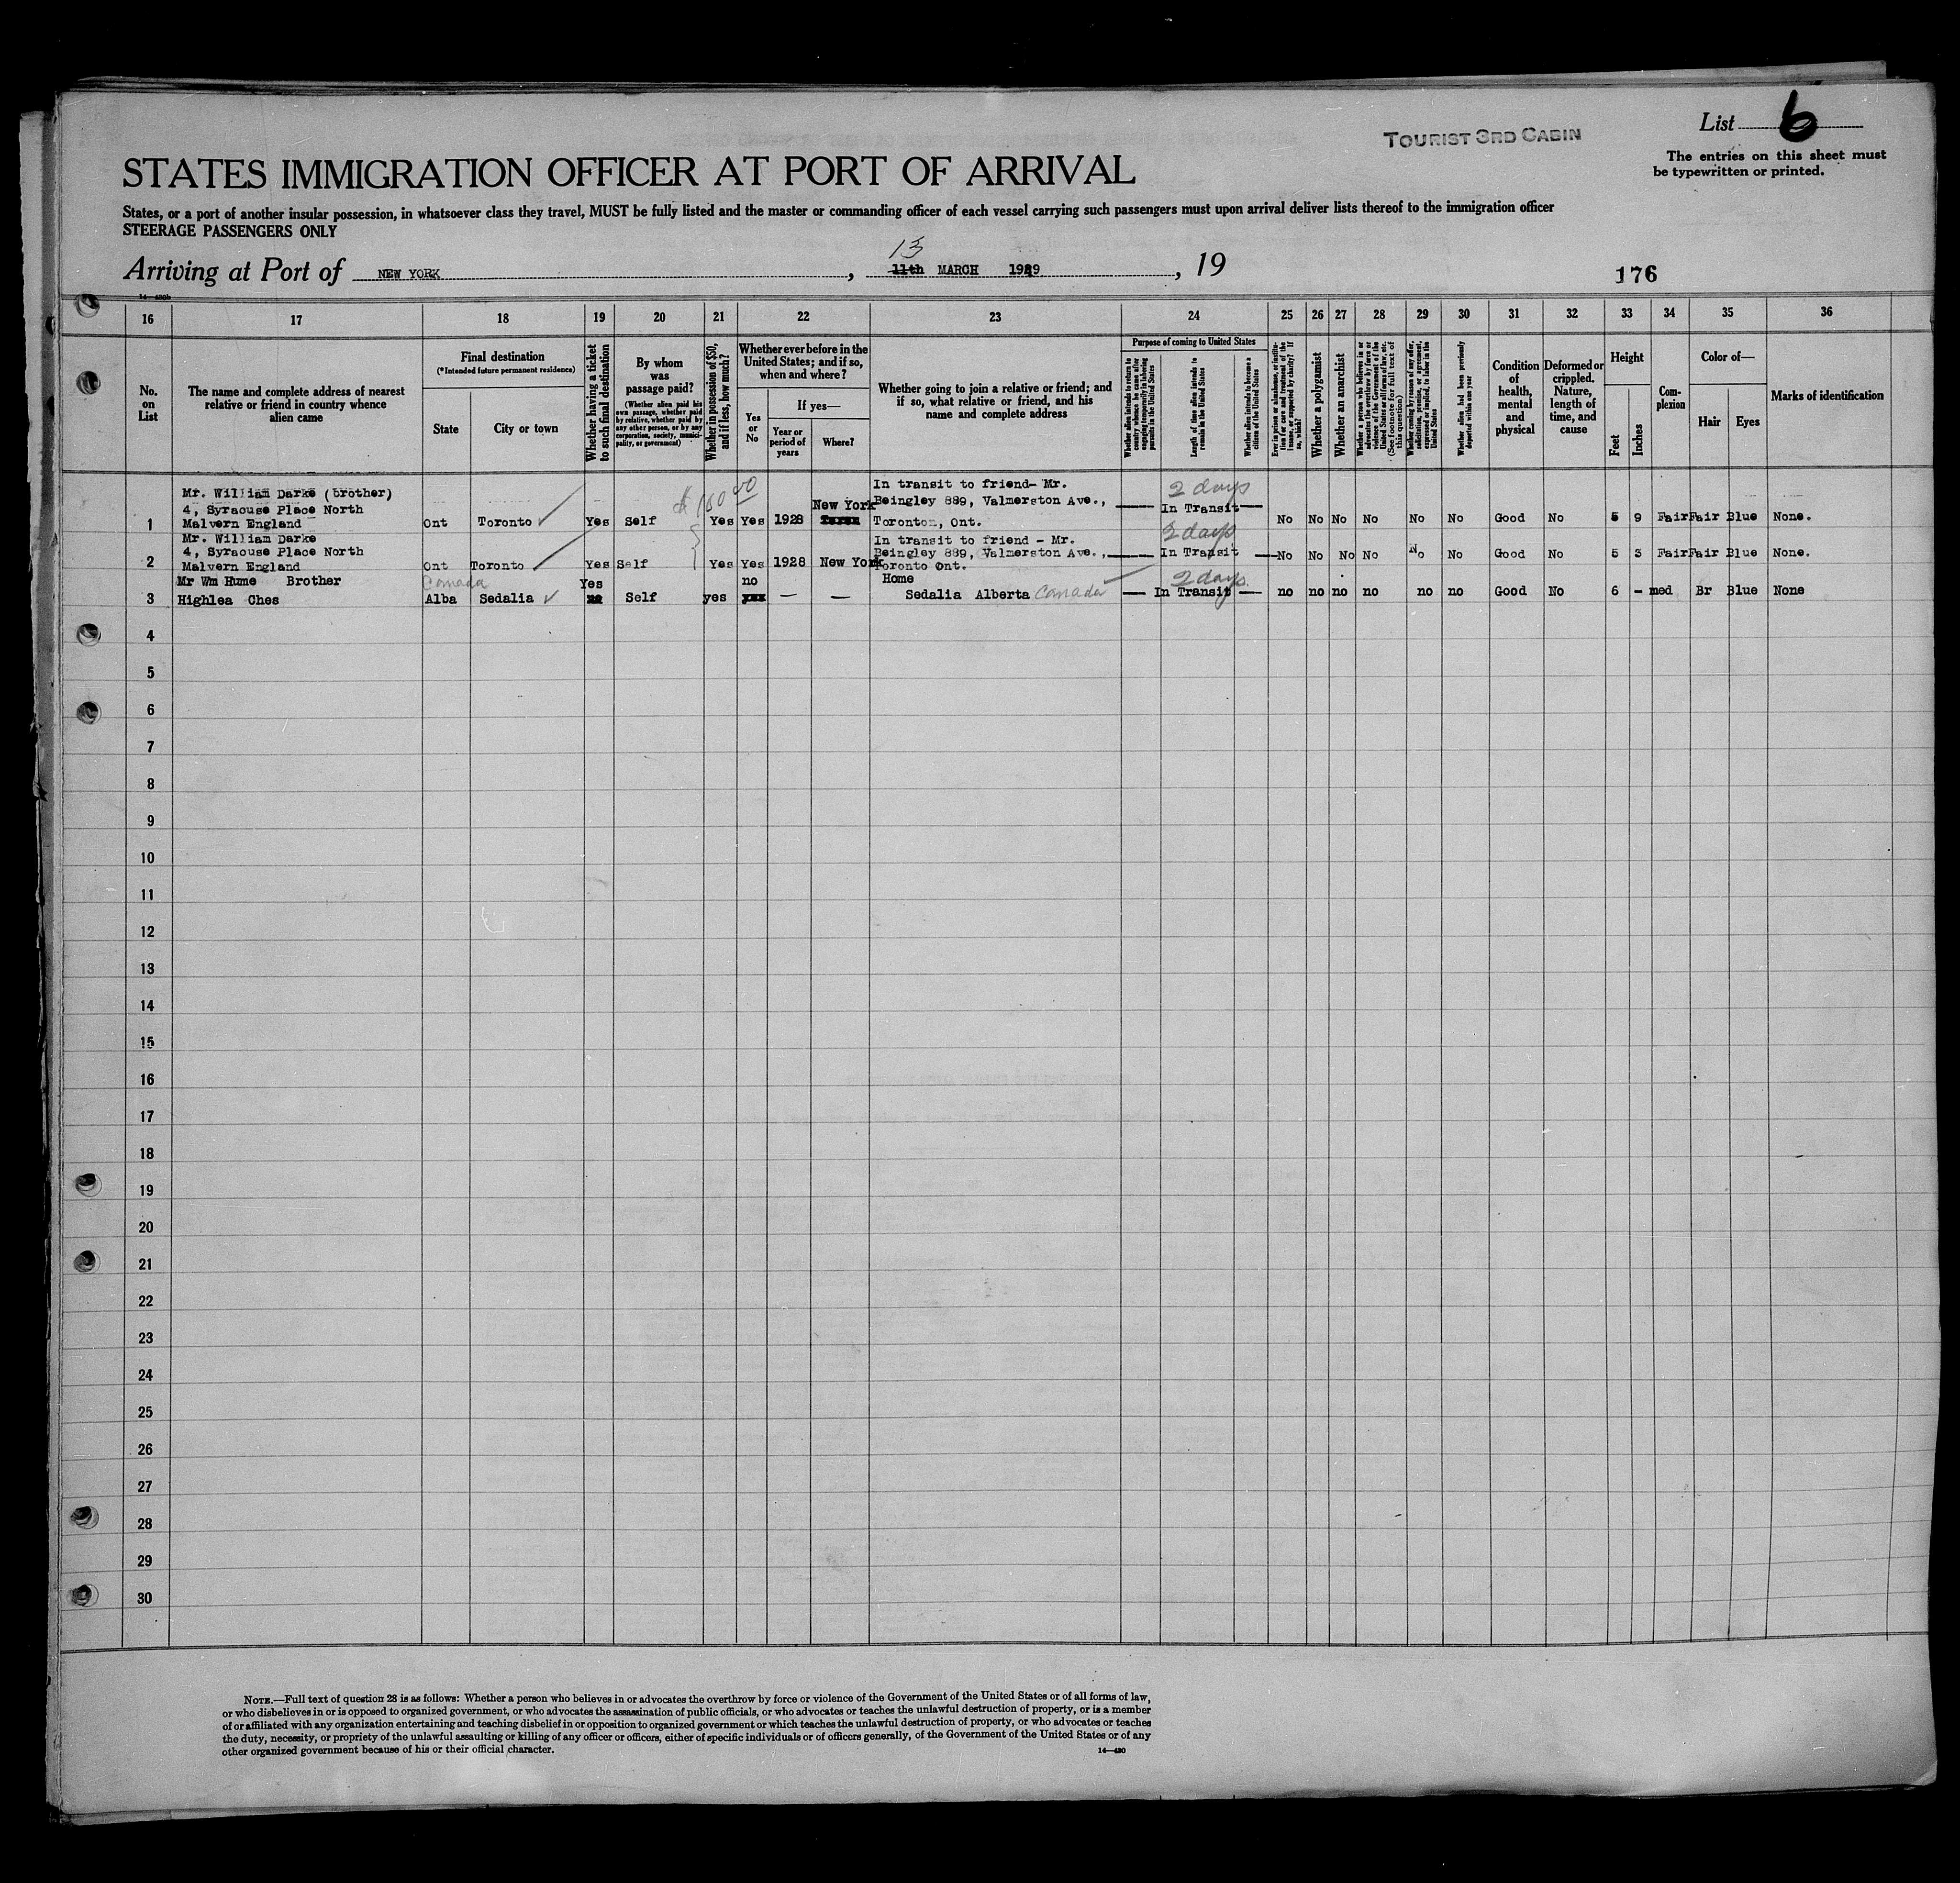 List 6
TOURIST 3RD CABIN
The entries on this sheet must
be typewritten or printed.
STATES IMMIGRATION OFFICER AT PORT OF ARRIVAL
States, or a port of another insular possession, in whatsoever class they travel, MUST be fully listed and the master or commanding officer of each vessel carrying such passengers must upon arrival deliver lists thereof to the immigration officer
STEERAGE PASSENGERS ONLY
13
Arriving at Port of NEW YORK, 11th MARCH 1929, 19
176
16 17 18 19 20 21 22 23 24 25 26 27 28 29 30 31 32 33 34 35 36
No.
on
List
The name and complete address of nearest
relative or friend in country whence
alien came
Final destination
(*Intended future permanent residence)
State
City or town
Whether having a ticket
to such final destination
By whom
was
passage paid?
(Whether alien paid his
own passage, whether paid
by relative, whether paid by
any other person, or by any
corporation, society, munici-
pality, or government)
Whether in possession of $50,
and if less, how much?
Whether ever before in the
United States; and if so,
when and where?
Yes
or
No
If yes—
Year or
period of
years
Where?
Whether going to join a relative or friend; and
if so, what relative or friend, and his
name and complete address
Purpose of coming to United States
Whether alien intends to return to
country whence he came after
engaging temporarily in laboring
pursuits in the United States
Length of time alien intends to
remain in the United States
Whether alien intends to become a
citizen of the United States
Ever in prison or almshouse, or institu-
tion for care and treatment of the
insane, or supported by charity? If
so, which?
Whether a polygamist
Whether an anarchist
Whether a person who believes in or
advocates the overthrow by force or
violence of the Government of the
United States or all forms of law, etc.
(See footnote for full text of
this question)
Whether coming by reason of any offer,
solicitation, promise, or agreement,
expressed or implied, to labor in the
United States
Whether alien had been previously
deported within one year
Condition
of
health,
mental
and
physical
Deformed or
crippled.
Nature,
length of
time, and
cause
Height
Feet
Inches
Com-
plexion
Color of—
Hair
Eyes
Marks of identification
Mr. William Darke (brother)
4, Syracuse Place North
1 Malvern England Ont Toronto Yes Self $150.00 Yes Yes 1928 New York
In transit to friend- Mr.
Beingley 889, Valmerston Ave.,
Toronto, Ont.
2 days
In Transit
No No No No No No Good No 5 9 Fair Fair Blue None.
Mr. William Darke
4, Syracuse Place North
2 Malvern England Ont Toronto Yes Self Yes Yes 1928 New York
In transit to friend - Mr.
Beingley 889, Valmerston Ave.,
Toronto Ont.
2 days
In Transit
No No No No No No Good No 5 3 Fair Fair Blue None.
Mr Wm Hume Brother Canada Yes no Home 2 days
3 Highlea Ches Alba Sedalia no Self yes yes — — Sedalia Alberta Canada — In Transit — no no no no no no Good No 6 - med Br Blue None
4
5
6
7
8
9
10
11
12
13
14
15
16
17
18
19
20
21
22
23
24
25
26
27
28
29
30
NOTE.—Full text of question 28 is as follows: Whether a person who believes in or advocates the overthrow by force or violence of the Government of the United States or of all forms of law,
or who disbelieves in or is opposed to organized government, or who advocates the assassination of public officials, or who advocates or teaches the unlawful destruction of property, or is a member
of or affiliated with any organization entertaining and teaching disbelief in or opposition to organized government or which teaches the unlawful destruction of property, or who advocates or teaches
the duty, necessity, or propriety of the unlawful assaulting or killing of any officer or officers, either of specific individuals or of officers generally, of the Government of the United States or of any
other organized government because of his or their official character.
14—480